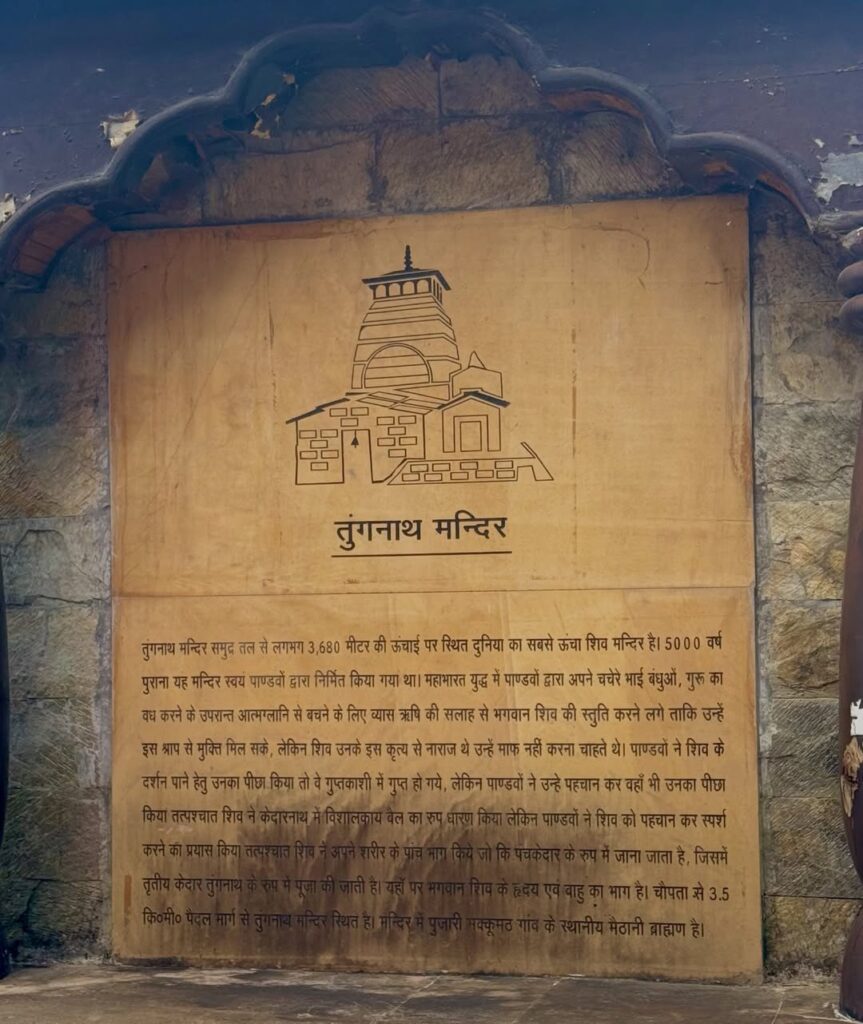 तुंगनाथ मन्दिर
तुंगनाथ मन्दिर समुद्र तल से लगभग 3,680 मीटर की ऊंचाई पर स्थित दुनिया का सबसे ऊंचा शिव मन्दिर है। 5000 वर्ष
पुराना यह मन्दिर स्वयं पाण्डवों द्वारा निर्मित किया गया था। महाभारत युद्ध में पाण्डवों द्वारा अपने चचेरे भाई बंधुओं, गुरू का
वध करने के उपरान्त आत्मग्लानि से बचने के लिए व्यास ऋषि की सलाह से भगवान शिव की स्तुति करने लगे ताकि उन्हें
इस श्राप से मुक्ति मिल सके, लेकिन शिव उनके इस कृत्य से नाराज थे उन्हें माफ नहीं करना चाहते थे। पाण्डवों ने शिव के
दर्शन पाने हेतु उनका पीछा किया तो वे गुप्तकाशी में गुप्त हो गये, लेकिन पाण्डवों ने उन्हे पहचान कर वहाँ भी उनका पीछा
किया तत्पश्चात शिव ने केदारनाथ में विशालकाय वैल का रुप धारण किया लेकिन पाण्डवों ने शिव को पहचान कर स्पर्श
करने का प्रयास किया तत्पश्चात शिव ने अपने शरीर के पांच भाग किये जो कि पंचकेदार के रुप में जाना जाता है, जिसमें
तृतीय केदार तुंगनाथ के रुप में पूजा की जाती है। यहाँ पर भगवान शिव के हृदय एवं वाहु का भाग है। चोपता से 3.5
कि०मी० पैदल मार्ग से तुगनाथ मन्दिर स्थित है। मन्दिर में पुजारी मक्कूमठ गांव के स्थानीय मैठानी ब्राह्मण है।